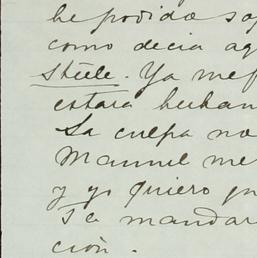 he podido so
como decia ag
Steele. Ya me
estara
La culpa no
Manuel me
y yo quiero
Te mandar
ción.